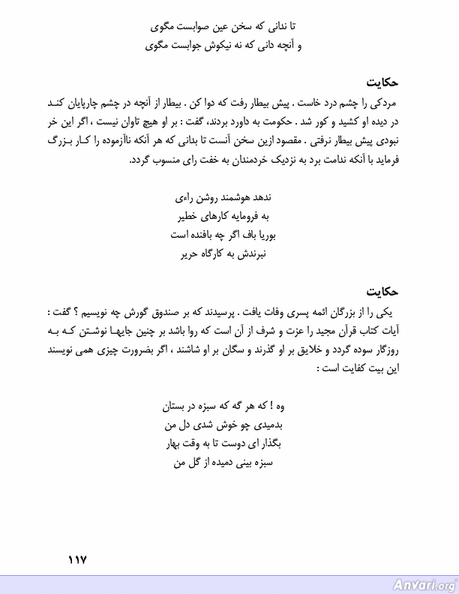 تا ندانی که سخن عین صوابست مگوی
و آنچه دانی که نه نیکوش جوابست مگوی
حکایت
مردکی را چشم درد خاست . پیش بیطار رفت که دوا کن . بیطار از آنچه در چشم چارپایان کند
در دیده او کشید و کور شد . حکومت به داور بردند، گفت : بر او هیچ تاوان نیست ، اگر این خر
نبودی پیش بیطار نرفتی . مقصود ازین سخن آنست تا بدانی که هر آنکه ناآزموده را کار بزرگ
فرماید با آنکه ندامت برد به نزدیک خردمندان به خفت رای منسوب گردد.
ندهد هوشمند روشن رای
به فرومایه کارهای خطیر
بوریا باف اگر چه بافنده است
نبرندش به کارگاه حریر
حکایت
یکی را از بزرگان ائمه پسری وفات یافت . پرسیدند که بر صندوق گورش چه نویسیم ؟ گفت :
آیات کتاب قرآن مجید را عزت و شرف از آن است که روا باشد بر چنین جایها نوشتن که به
روزگار سوده گردد و خلایق بر او گذرند و سگان بر او شاشند ، اگر بضرورت چیزی همی نویسند
این بیت کفایت است :
وه ! که هر گه که سبزه در بستان
بدمیدی چو خوش شدی دل من
بگذار ای دوست تا به وقت بهار
سبزه بینی دمیده از گل من
۱۱۷
Anvari.org